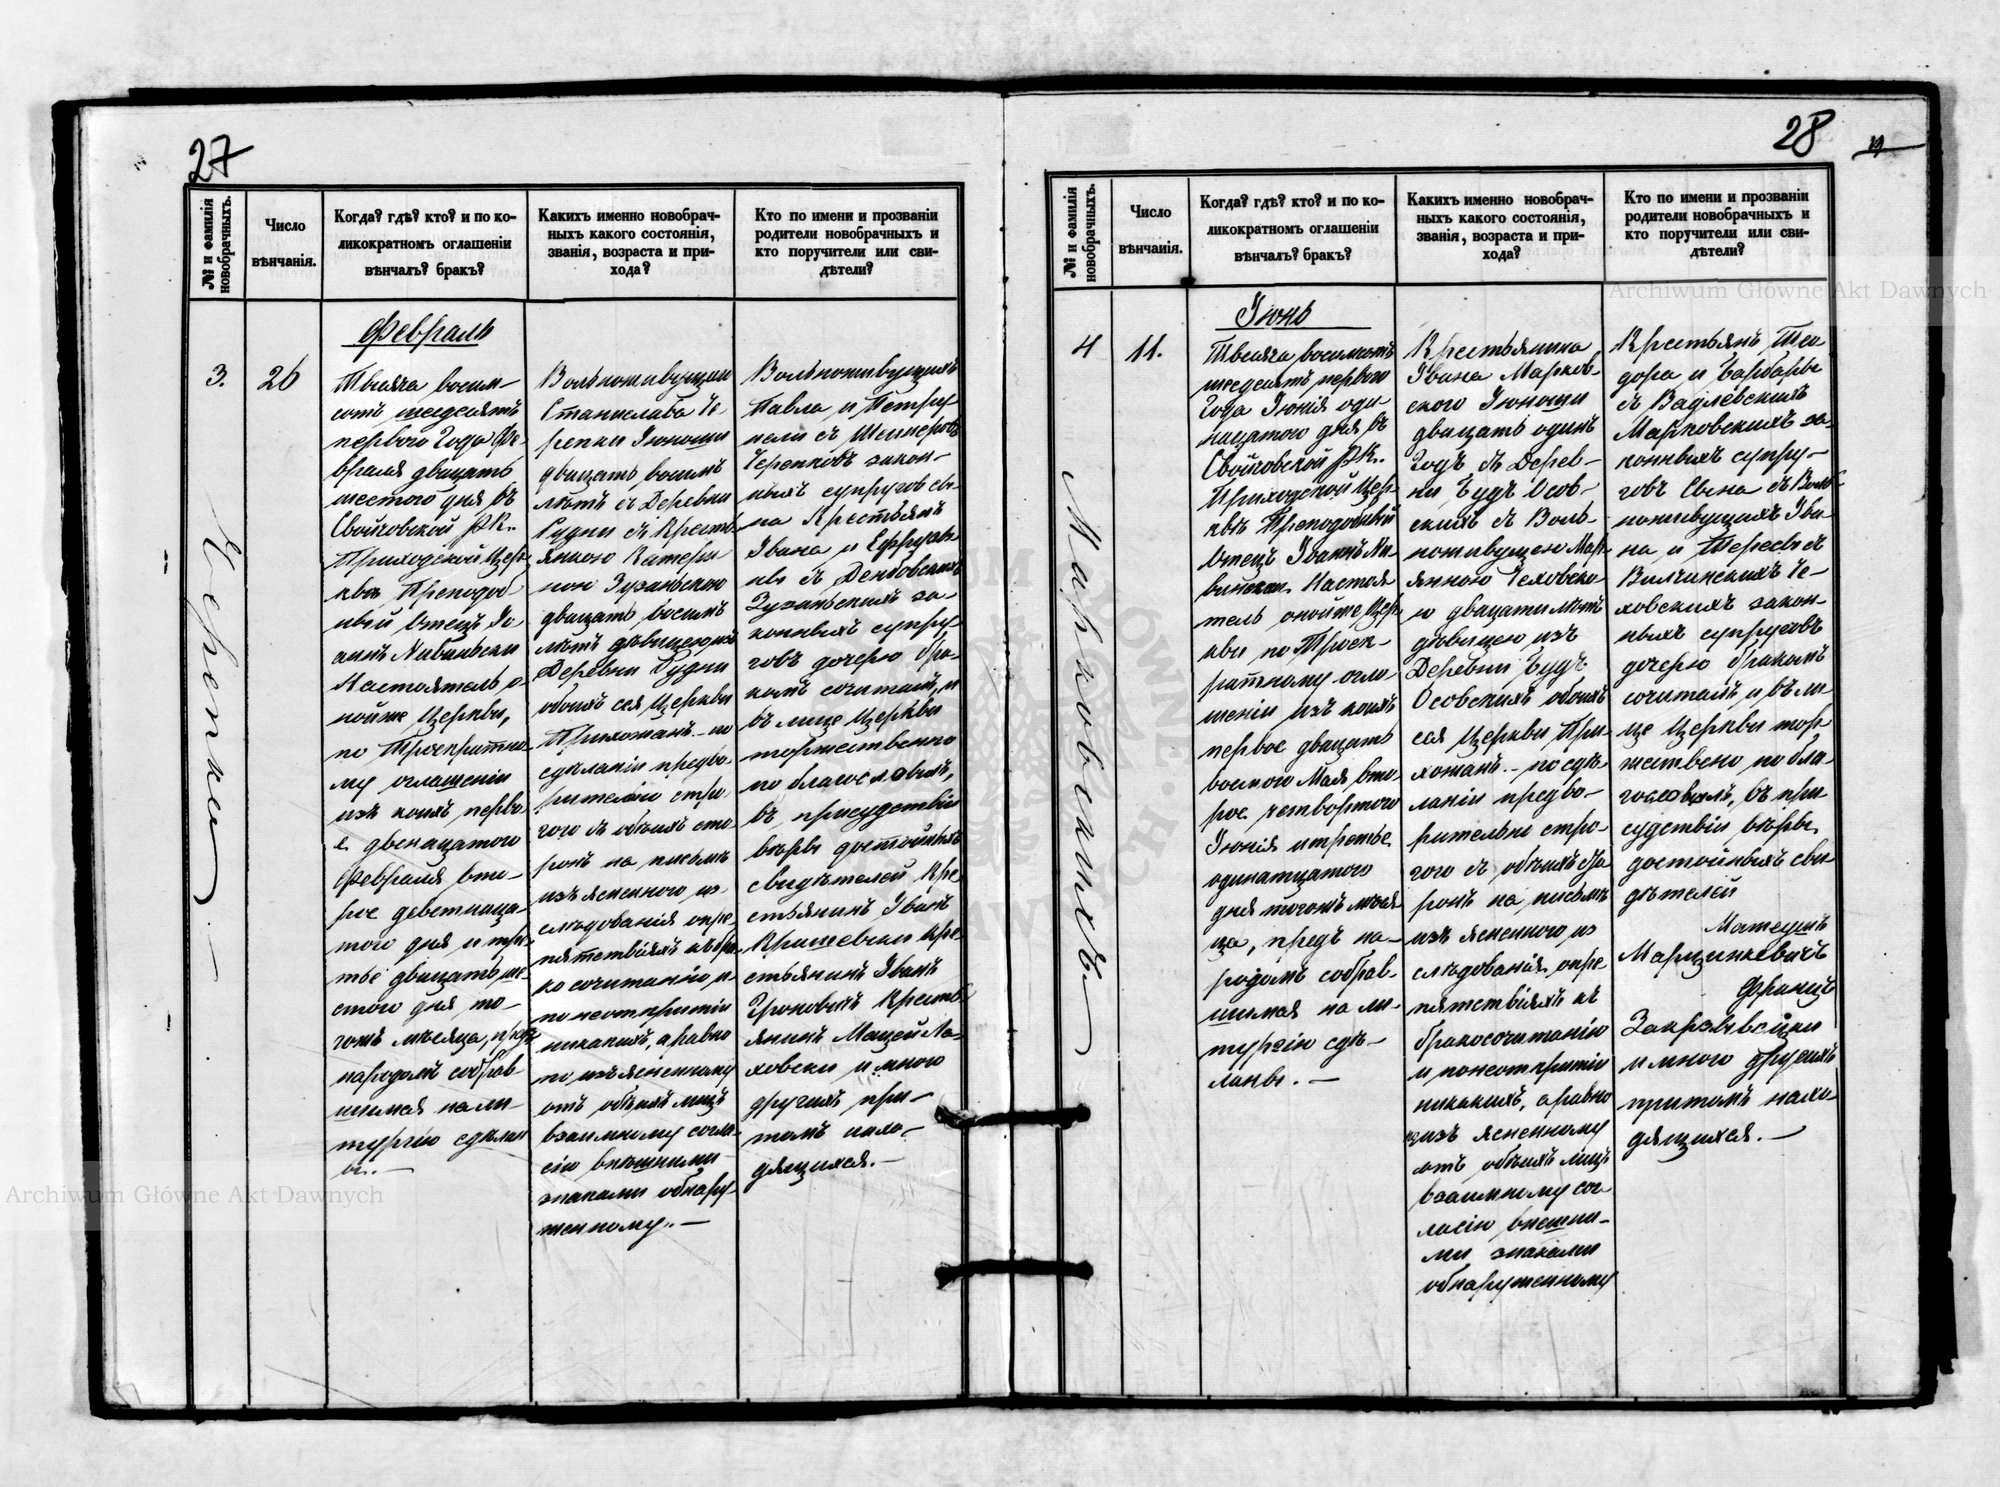 27
№ и фамилія
новобрачныхъ.
Число
вѣнчанія.
Когда? гдѣ? кто? и по ко-
ликократномъ оглашеніи
вѣнчалъ? бракъ?
Какихъ именно новобрач-
ныхъ какого состоянія,
званія, возраста и при-
хода?
Кто по имени и прозваніи
родители новобрачныхъ и
кто поручители или сви-
дѣтели?
3.
26
Февраль
Тысяча восем-
сотъ шесдесятъ
перваго Года Фе-
враля двацать
шестого дня въ
Свойчовской Р.К.
Приходской Цер-
квѣ Преподоб-
ный Отецъ Іо
Настоятель о-
нойже Церкви,
по Троекратно-
му оглашеніи
изъ коихъ перво-
е двенацатого
Февраля вто-
рое деветнаца-
того дня и тре-
тье двацать ше-
стого дня то-
гожъ мѣсяца, предъ
народомъ собрав-
шимся на ли-
тургію сдѣлан
ы. —
Вольноживущаи
Станислава Че
репки Юноши
двацать восемъ
лѣтъ съ Деревни
Рудни съ Кресть
янкою Катери
ною
двацать восемъ
лѣтъ дѣвицею изъ
Деревни Рудни
обоихъ сея Церкви
Прихожанъ. — по
сдѣланіи предва-
рительно стро-
гого съ обѣихъ сто-
ронъ на письмѣ
изъясненного из-
слѣдованія о пре
пятствіяхъ къ бра
ко сочитанію и
по неоткрытіи
никакихъ, а равно
по изъясненному
отъ обѣихъ лицъ
взаимному согла-
сію внѣшними
знаками обнару
женному. —
Вольноживущихъ
Павла и Петру
нели съ
Черепковъ закон-
ныхъ супруговъ сы-
на Крестьянъ
Ивана и
законныхъ супру
говъ дочерю бра-
комъ сочиталъ, и
въ лице Церкви
торжественно
поблагословилъ,
въ присудствіи
вѣры достойныхъ
свидѣтелей Кре
стьянинъ Иванъ
Кришевски Кре
стьянинъ Иванъ
Кресть
янинъ Мацей Ля-
ховски и много
другихъ при-
томъ нахо-
дящихся. —
Черепка —
28
19
№ и фамилія
новобрачныхъ.
Число
вѣнчанія.
Когда? гдѣ? кто? и по ко-
ликократномъ оглашеніи
вѣнчалъ? бракъ?
Какихъ именно новобрач-
ныхъ какого состоянія,
званія, возраста и при-
хода?
Кто по имени и прозваніи
родители новобрачныхъ и
кто поручители или сви-
дѣтели?
4
11.
Іюнь
Тысяча восемсотъ
шесдесятъ перваго
Года Іюнія оди
нацатого дня въ
Свойчовской Р.К.
Приходской Цер
квѣ Преподобный
Отецъ Іоаннъ
Настоя
тель онойже Цер
кви по Троек-
ратному огла
шеніи изъ коихъ
первое двацать
восмого Мая вто
рое четвертого
Іюнія и третье
одинатцатого
дня тогожъ мѣся
ца, предъ на-
родомъ собрав-
шимся на ли-
тургію сдѣ-
ланы. —
Крестьянина
Ивана Марков-
ского Юноши
двацать одинъ
Годъ съ Дерев-
ни Будъ Осов-
скихъ съ Воль-
ноживущею Мар
янною Чеховско
ю двацати лѣтъ
дѣвицею изъ
Деревни Будъ
Осовскихъ обоихъ
сея Церкви При
хожанъ. — по сдѣ
ланіи предва-
рительно стро-
гого съ обѣихъ сто
ронъ на письмѣ
изъ ясненного из
слѣдованія о пре
пятствіяхъ къ
бракосочитанію
и по неоткрытіи
никакихъ, а равно
изъ ясненному
отъ обѣихъ лицъ
взаимному сог
ласію внешни-
ми знаками
обнаруженному
Крестьянъ Тео
дора и Барбары
съ Вадлевскихъ
Марковскихъ за-
конныхъ супру-
говъ Сына съ Воль
ноживущихъ Ива
на и Тересы съ
Вилчинскихъ Че-
ховскихъ закон-
ныхъ супруговъ
дочерю бракомъ
сочиталъ и въ ли
це Церкви тор-
жествено побла-
гословилъ, въ при
судствіи вѣры
достойныхъ сви
дѣтелей
Матеушъ
Марцинкевичъ
Францъ
и много другихъ
притомъ нахо-
дящихся. —
Марковскихъ —
Archiwum Główne Akt Dawnych
Archiwum Główne Akt Dawnych